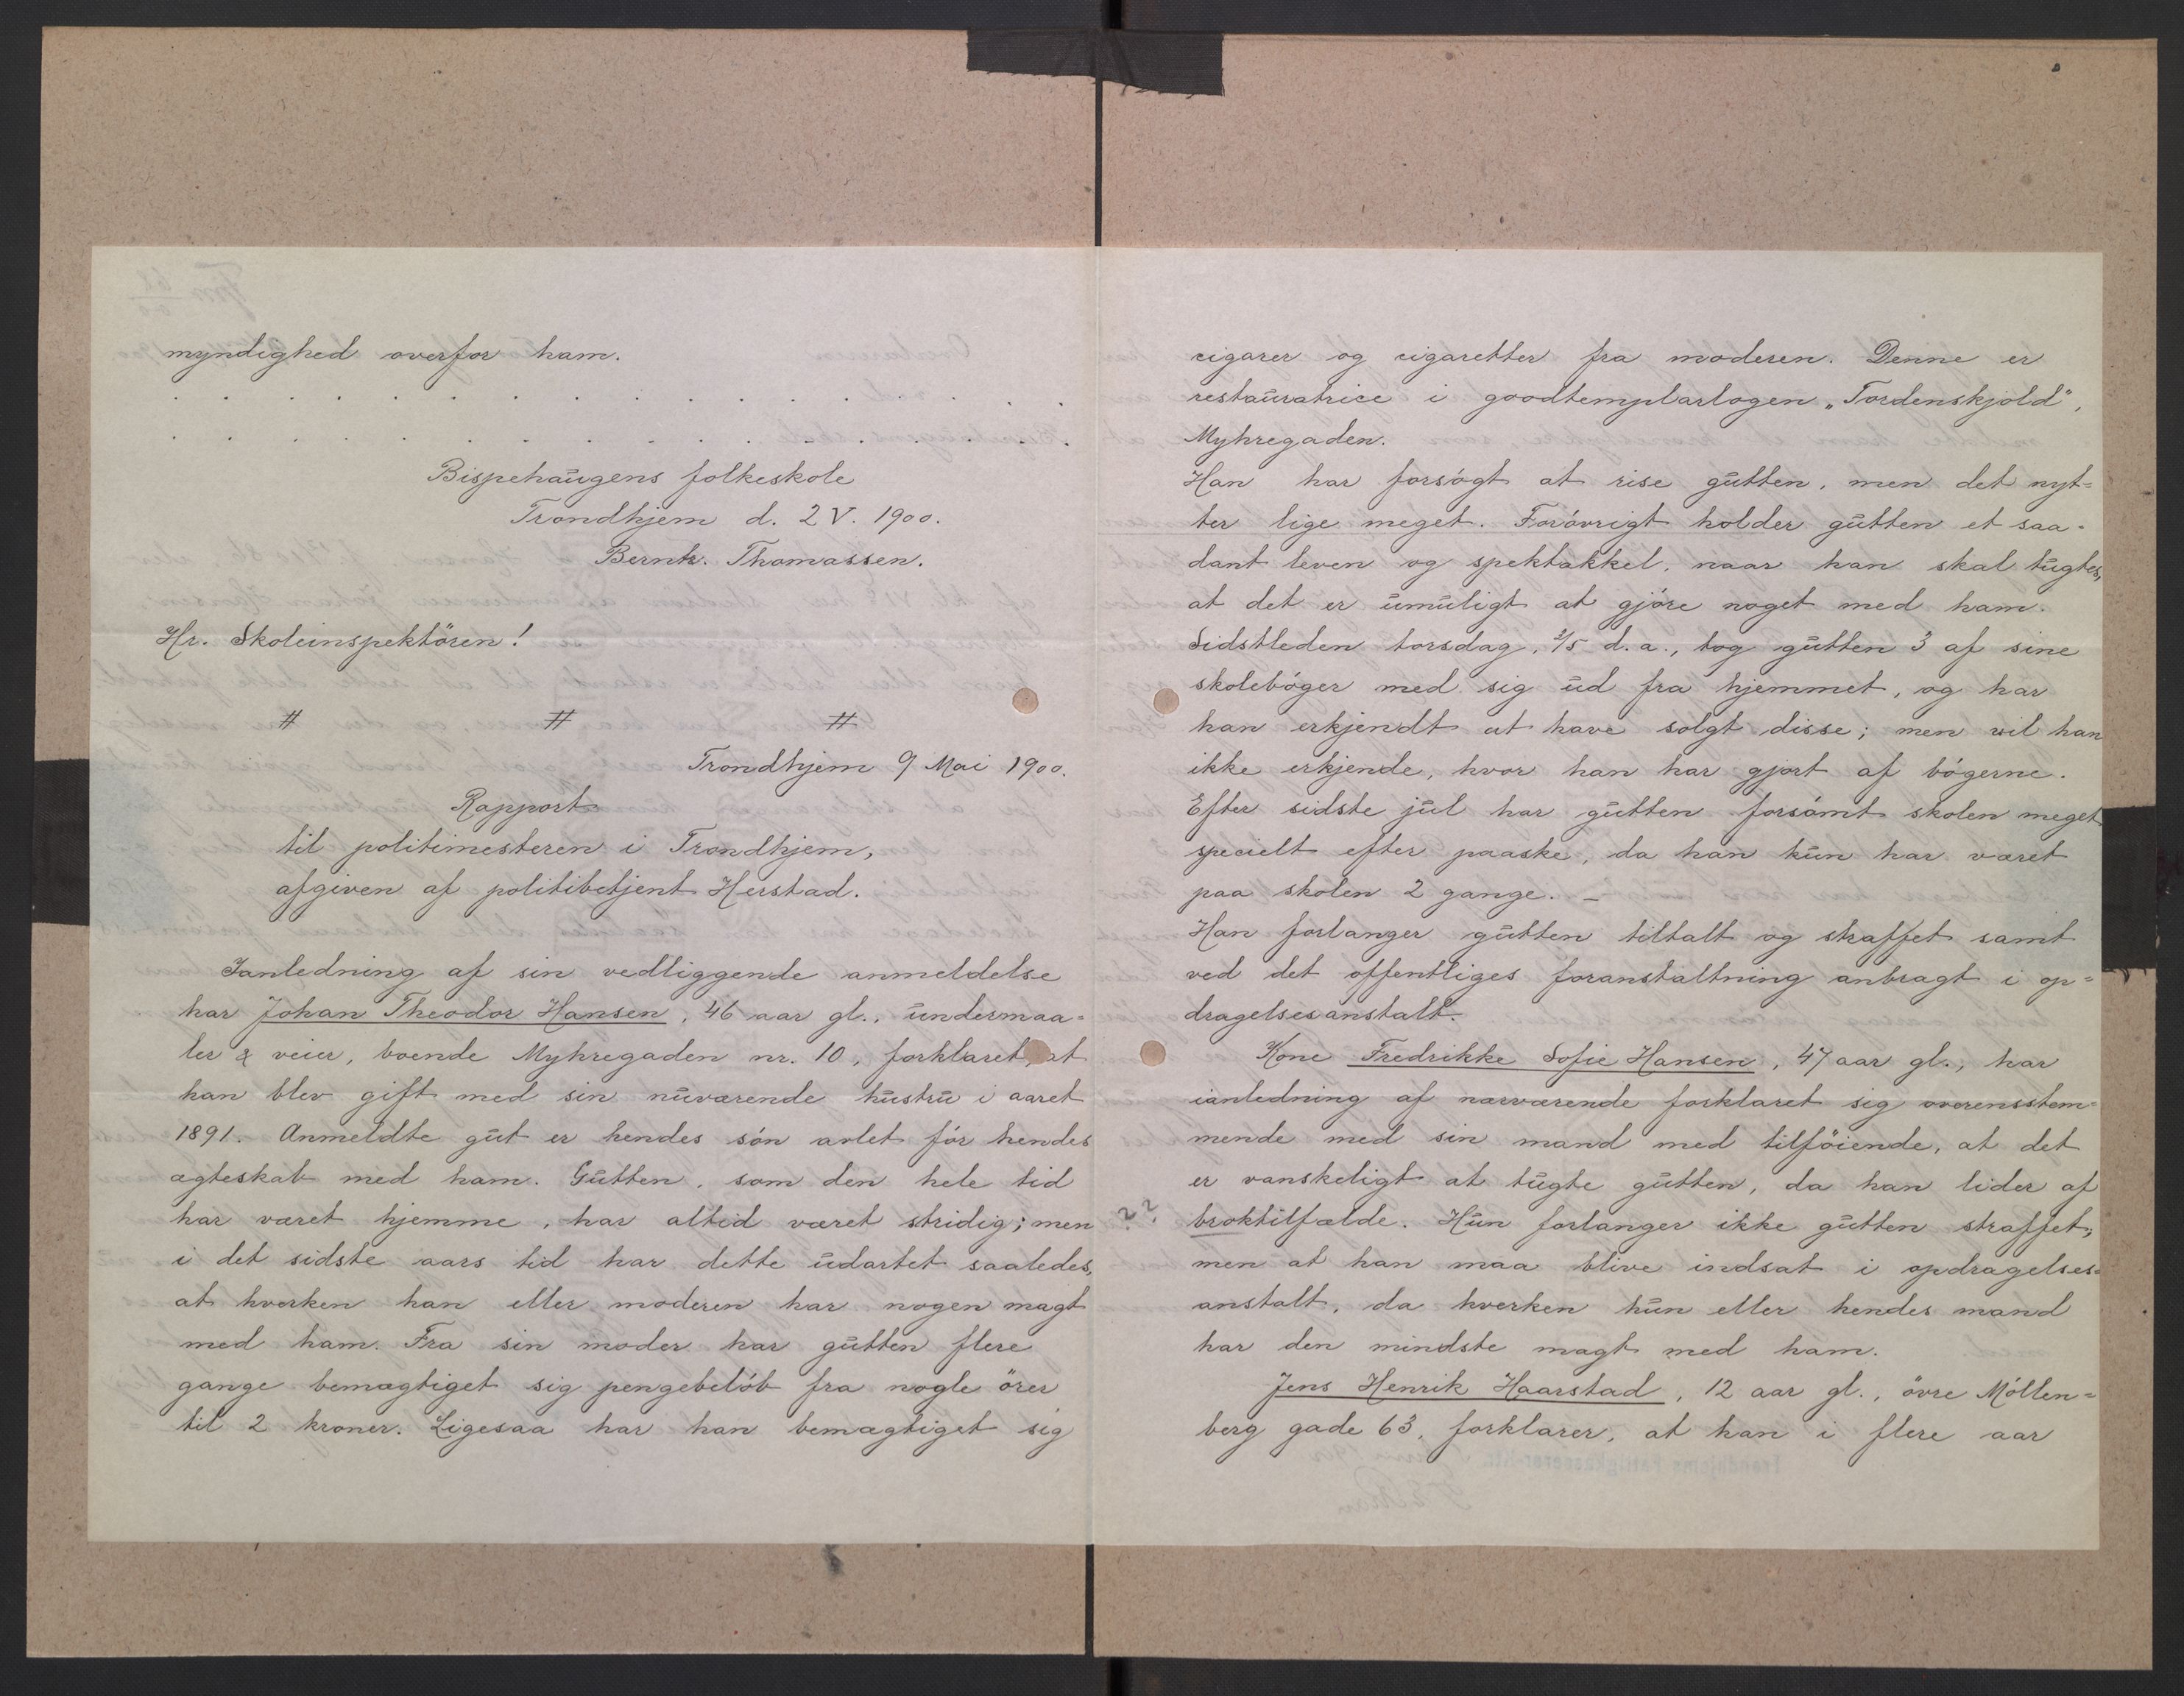 myndighed overfor ham.
. . . . . . . . . . . . . . . . .
. . . . . . . . . . . . . . . . .
Bispehaugens folkeskole
Trondhjem d. 2 V. 1900.
Bernh. Thomassen.
Hr. Skoleinspektören!
# # #
Trondhjem 9 Mai 1900.
Rapport
til politimesteren i Trondhjem,
afgiven af politibetjent Herstad.
Ianledning af sin vedliggende anmeldelse
har Johan Theodor Hansen, 46 aar gl., undermaa=
ler & veier, boende Myhregaden nr. 10, forklaret, at
han blev gift med sin nuværende hustru i aaret
1891. Anmeldte gut er hendes sön avlet för hendes
ægteskab med ham. Gutten, som den hele tid
har været hjemme, har altid været stridig; men
i det sidste aars tid har dette udartet saaledes,
at hverken han eller moderen har nogen magt
med ham. Fra sin moder har gutten flere
gange bemægtiget sig pengebelöb fra nogle örer
til 2 kroner. Ligesaa har han bemægtiget sig
cigarer og cigaretter fra moderen. Denne er
restauratrice i goodtemplarlogen „Tordenskjold",
Myhregaden.
Han har forsögt at rise gutten, men det nyt=
ter lige meget. Forövrigt holder gutten et saa=
dant leven og spektakkel, naar han skal tugtes,
at det er umuligt at gjöre noget med ham.
Sidstleden torsdag, 3/5 d.a., tog gutten 3 af sine
skoleböger med sig ud fra hjemmet, og har
han erkjendt at have solgt disse; men vil han
ikke erkjende, hvor han har gjort af bögerne.
Efter sidste jul har gutten forsömt skolen meget
specielt efter paaske, da han kun har været
paa skolen 2 gange. –
Han forlanger gutten tiltalt og straffet samt
ved det offentliges foranstaltning anbragt i op=
dragelsesanstalt.
Kone Fredrikke Sofie Hansen, 47 aar gl., har
ianledning af nærværende forklaret sig overensstem=
mende med sin mand med tilföiende, at det
er vanskeligt at tugte gutten, da han lider af
?? broktilfælde. Hun forlanger ikke gutten straffet;
men at han maa blive indsat i opdragelses=
anstalt, da hverken hun eller hendes mand
har den mindste magt med ham.
Jens Henrik Haarstad, 12 aar gl., övre Möllen=
berg gade 63, forklarer, at han i flere aar